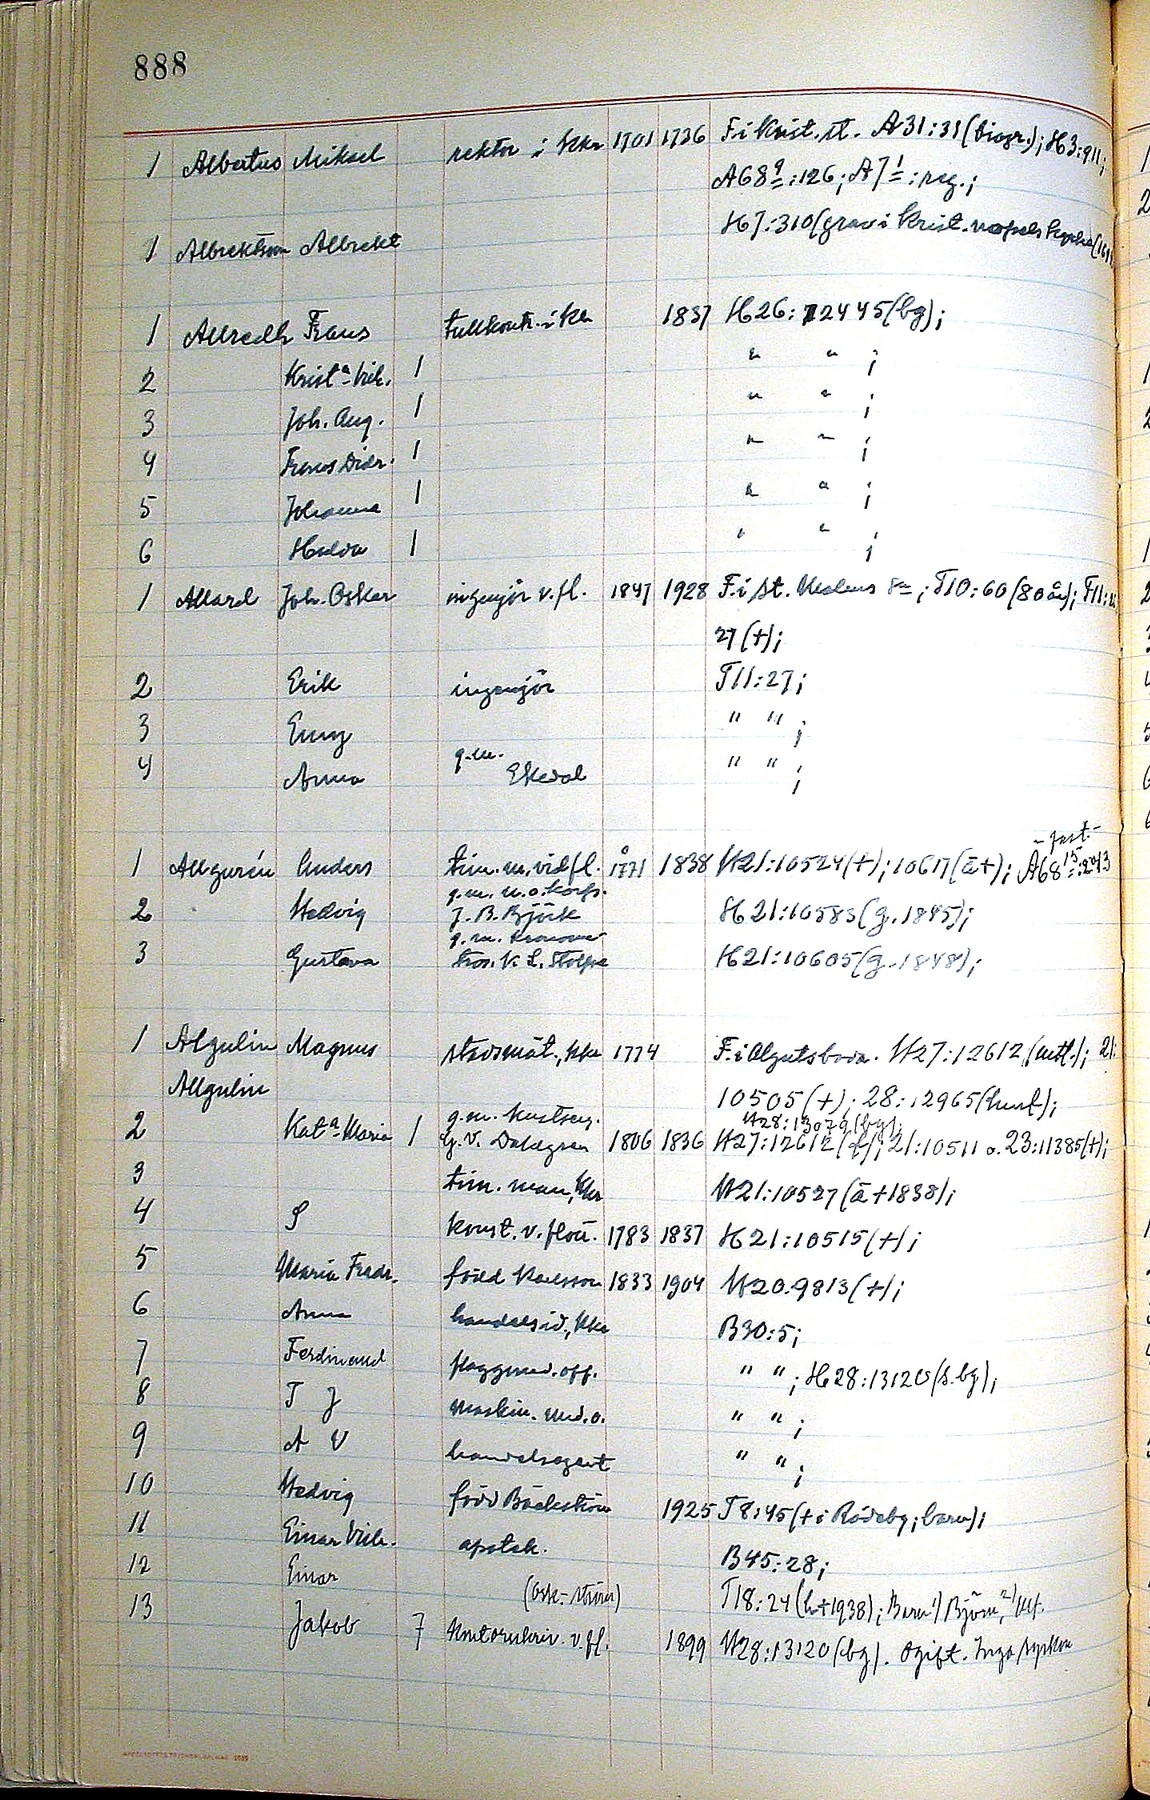 888
1 Albertus Mikael rektor i Kkr 1701 1736 F. i Krist.st. A31:31 (biogr.); H3:911;
A68 9:126; A7 1: reg.;
1 Albrektsson Albrekt H7:310 (grav i Krist.
1 Allredh Frans tullkontr. i Kkr 1837 H26:12445 (bg);
2 Krist a Vilh. 1 " " ;
3 Joh. Aug. 1 " " ;
4 Frans Didr. 1 " " ;
5 Johanna 1 " " ;
6 Hulda 1 " " ;
1 Allard Joh. Oskar ingenjör v. fl. 1847 1928 F. i St. ; T10:60 (80 år); T11:
27 (+);
2 Erik ingenjör T11:27;
3 Enny " " ;
4 Anna g.m. Ekedal " " ;
- fast. -
1 Allgurén Anders tim. m. vid fl. 1771 1838 H21:10524 (+); 10617 (ä+); A68 15:
2 Hedvig g.m. u.o.korp. J. B. Björk H21:10583 (g. 1845);
3 Gustava g.m. K L. Stolpe H21:10605 (g. 1848);
1 Algulin Magnus Kkr 1774 F. i Algutsboda. H27:12612 ; 21:
Allgulin 10505 (+); 28:12965 (hust);
g.m. H28:13079 (bg);
2 Kat a Maria 1 G. V. Dahlgren 1806 1836 H27:12612 ; 21:10511 o. 23:11385 (+);
3 tim. man, Kkr H21:10527 (ä+1838);
4 S konst. v. flott. 1783 1837 H21:10515 (+);
5 Maria Fredr. född Karlsson 1833 1904 H20.9813 (+);
6 Anna handelsid., Kkr B30:5;
7 Ferdinand flaggund.off. " " ; H28:13120 (s. bg);
8 T J maskin. und.o. " " ;
9 A V handelsagent " " ;
10 Hedvig född Bäckström 1925 T8:45 (+ i Rödeby; barn);
11 Einar Vilh. apotek. B45:28;
12 Einar (Osk.- ) T18:24 (h+1938); Barn: 1) Björn, 2) Ulf.
13 Jakob 7 kontorsskriv. v. fl. 1899 H28:13120 (bg). Ogift. Inga syskon